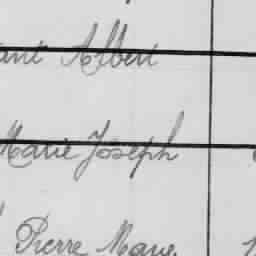 Albert
Marie Joseph
Pierre Marie